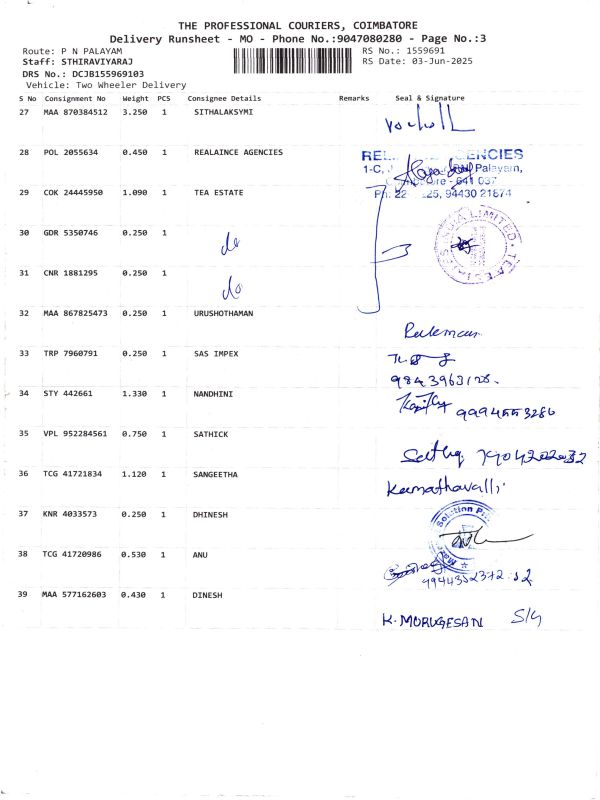 THE PROFESSIONAL COURIERS, COIMBATORE
Delivery Runsheet - MO - Phone No.:9047080280 - Page No.:3
Route: P N PALAYAM RS No.: 1559691
Staff: STHIRAVIYARAJ RS Date: 03-Jun-2025
DRS No.: DCJB155969103
Vehicle: Two Wheeler Delivery
S No Consignment No Weight PCS Consignee Details Remarks Seal & Signature
27 MAA 870384512 3.250 1 SITHALAKSYMI
28 POL 2055634 0.450 1 REALAINCE AGENCIES
29 COK 24445950 1.090 1 TEA ESTATE
30 GDR 5350746 0.250 1 do
31 CNR 1881295 0.250 1 do
32 MAA 867825473 0.250 1 URUSHOTHAMAN
33 TRP 7960791 0.250 1 SAS IMPEX
34 STY 442661 1.330 1 NANDHINI
35 VPL 952284561 0.750 1 SATHICK
36 TCG 41721834 1.120 1 SANGEETHA
Kamathavalli
37 KNR 4033573 0.250 1 DHINESH
Solution
38 TCG 41720986 0.530 1 ANU
39 MAA 577162603 0.430 1 DINESH
K. MORUGESAN S/G